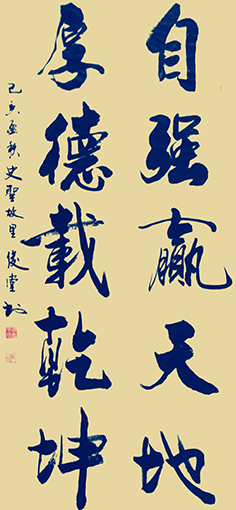 自强赢天地
厚德载乾坤
己亥孟秋史圣故里俊堂书